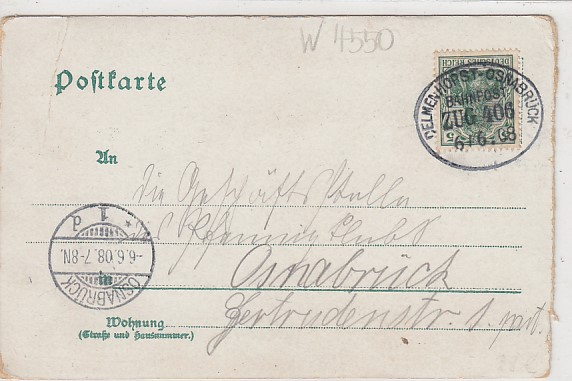 W 4550
Postkarte
DEUTSCHES REICH
5 5
DELMENHORST-OSNABRÜCK
BAHNPOST
ZUG 406
6/6 08
An
die Geschäftsstelle
des Pfennig
Osnabrück
Gertrudenstr. 1. part.
OSNABRÜCK
-6.6.08.7-8N.
* 1 d
Wohnung
(Straße und Hausnummer.)